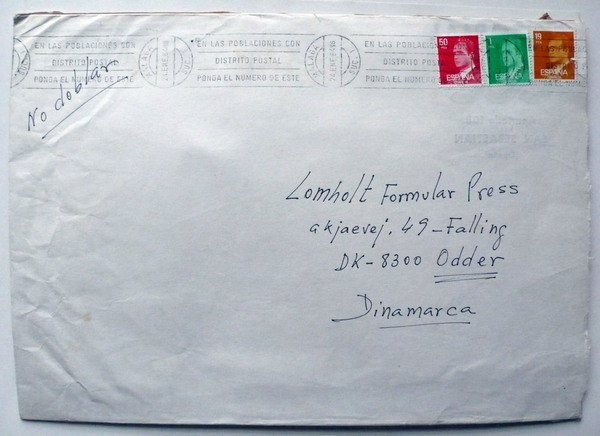 EN LAS POBLACIONES CON
DISTRITO POSTAL
PONGA EL NUMERO DE ESTE
MALAGA
SUC. 1
EN LAS POBLACIONES CON
DISTRITO POSTAL
PONGA EL NUMERO DE ESTE
MALAGA
SUC. 1
EN LAS POBLACIONES
DISTRITO POSTAL
PONGA EL NUMERO
50
ESPAÑA
ESPAÑA
19
ESPAÑA
No doblar
SEBASTIAN
Lomholt Formular Press
akjaevej. 49-Falling
DK-8300 Odder
Dinamarca